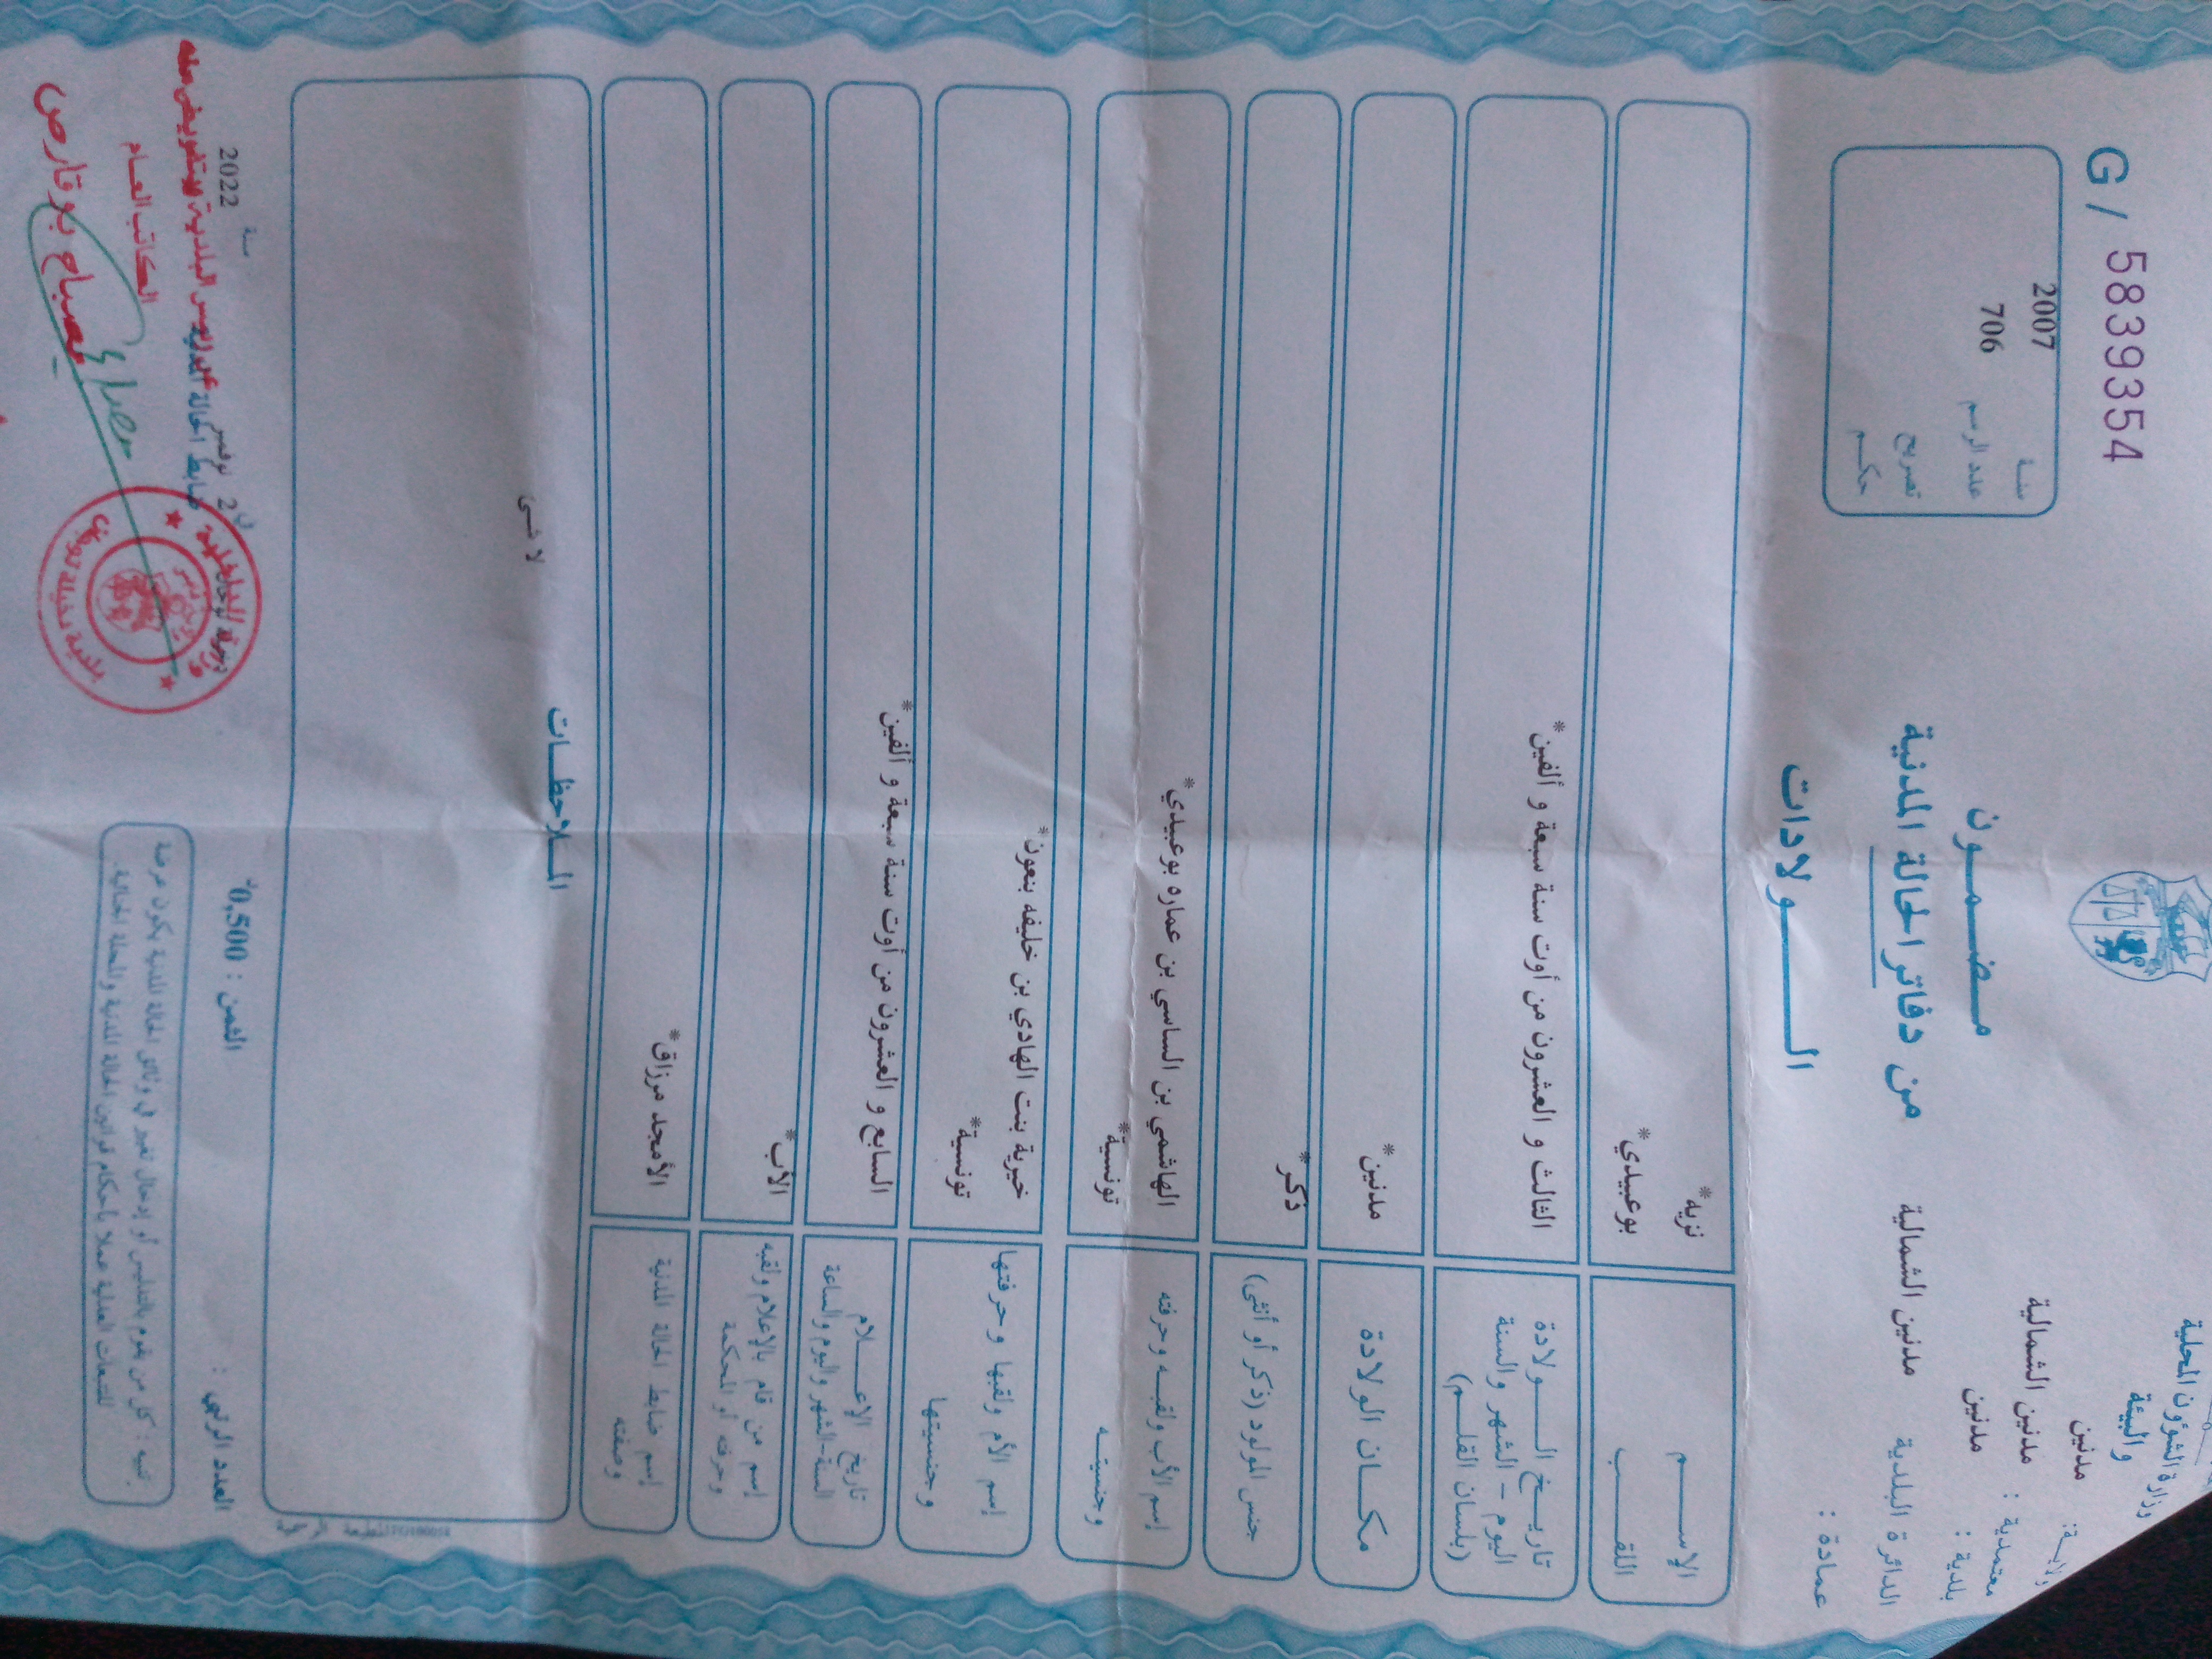 وزارة الشؤون المحلية
والبيئة
ولاية: مدنين
معتمدية : مدنين الشمالية
بلدية : مدنين
الدائرة البلدية مدنين الشمالية
عمادة :
G/ 5839354
سنة 2007
عدد الرسم 706
تصريح
حكم
مضمون
من دفاتر الحالة المدنية
الولادات
الإسم نزيه*
اللقب بوعبيدي*
تاريخ الولادة
اليوم - الشهر والسنة
(بلسان القلم)
الثالث و العشرون من أوت سنة سبعة و ألفين*
مكان الولادة مدنين*
جنس المولود (ذكر أو أنثى) ذكر*
إسم الأب ولقبه وحرفته الهاشمي بن الساسي بن عماره بوعبيدي*
وجنسيته تونسية*
إسم الأم ولقبها وحرفتها خيرية بنت الهادي بن خليفه بنعون*
وجنسيتها تونسية*
تاريخ الإعلام
السنة-الشهر واليوم والساعة
السابع و العشرون من أوت سنة سبعة و ألفين*
إسم من قام بالإعلام ولقبه
وحرفته أو المحكمة
الأب*
إسم ضابط الحالة المدنية
وصفته
الأمجد مرزاق*
الملاحظات
لا شيء
المطبعة الرسمية
العدد الرتبي :
الثمن : 0,500د
في 2 نوفمبر سنة 2022
ضابط الحالة المدنية
الكاتب العام
مصباح بوقارص
تنبيه : كل من يقوم بالتدليس أو إدخال تغيير في وثائق الحالة المدنية يكون عرضة
للتتبعات العدلية عملا بأحكام قوانين الحالة المدنية والمجلة الجنائية.